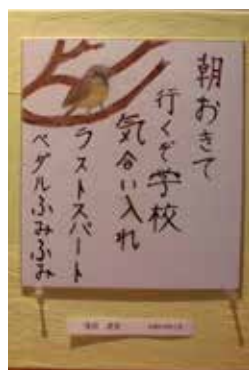 朝おきて
行くぞ学校
気合い入れ
ラストスパート
ペダルふみふみ